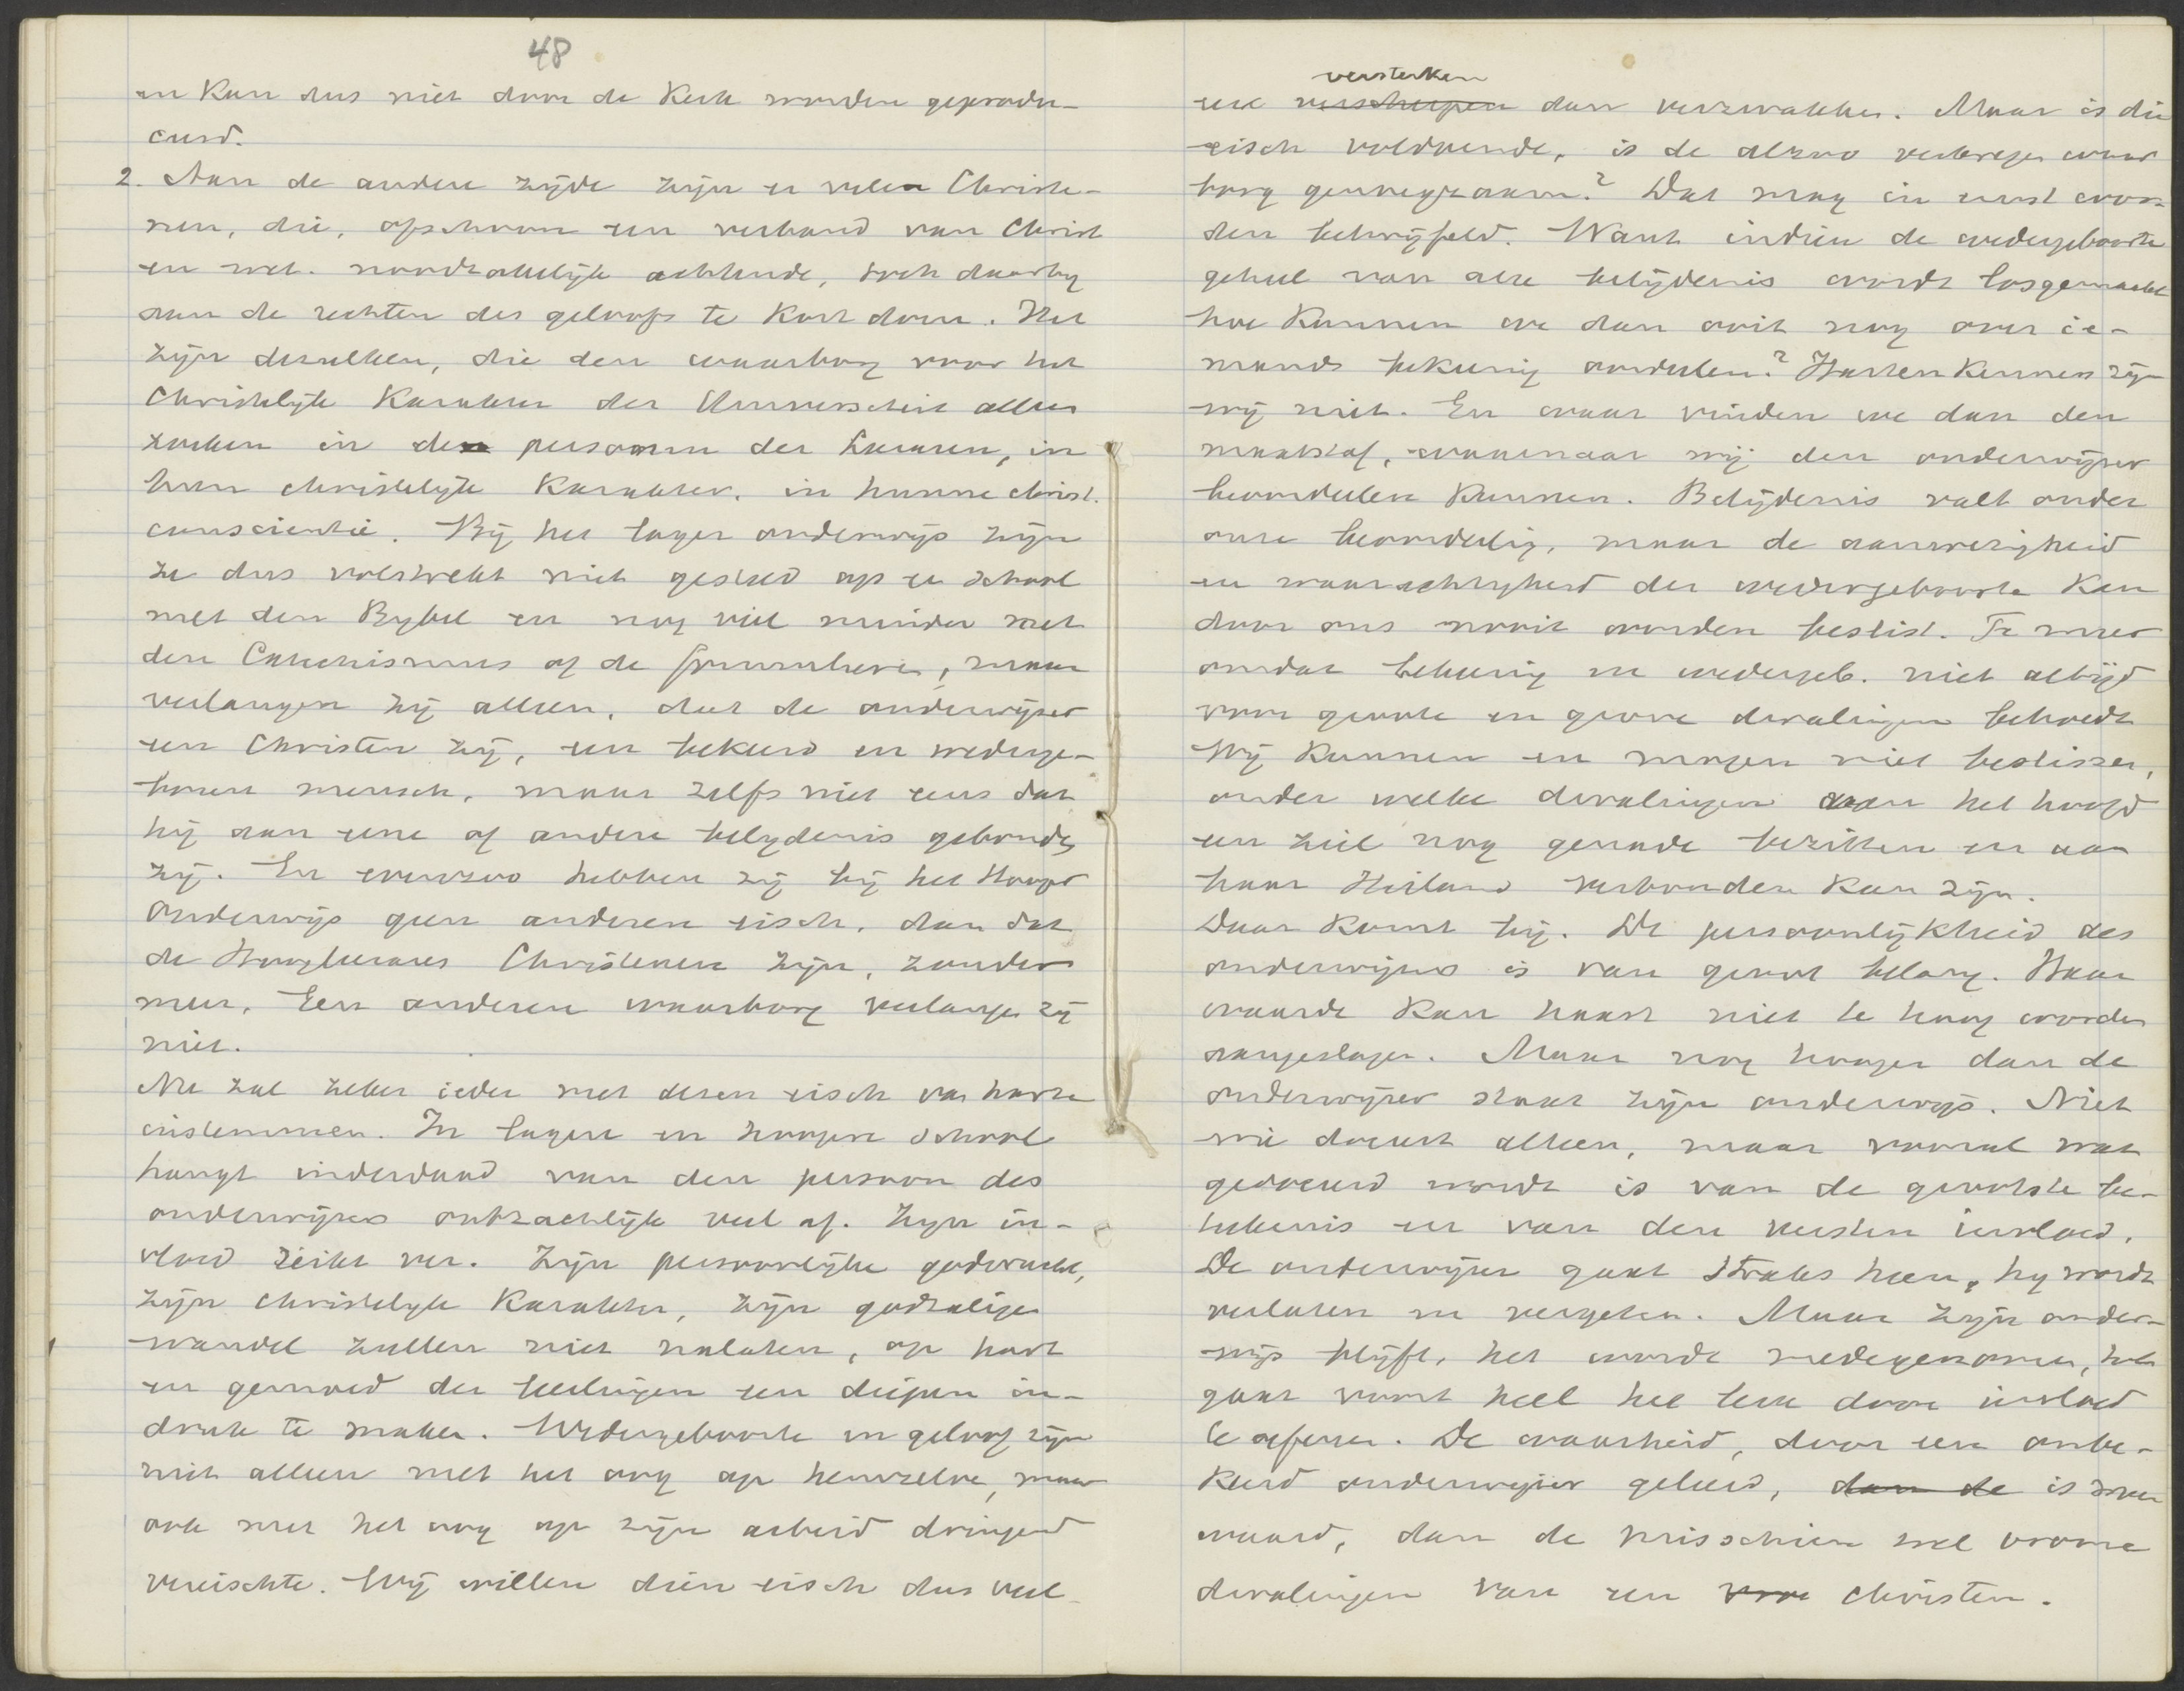 48
en kan dus niet door de Kerk worden geprodu-
ceerd.
2. Aan de andere zijde zijn er velen Christe-
nen, die, ofschoon een verband van Christ
en wet. noodzakelijk achtende, toch daarbij
aan de rechten des geloofs te kort doen. Het
zijn dezulken, die den waarborg voor het
Christelijk Karakter der Universiteit alleen
zoeken in de personen der Leeraren, in
hun christelijk Karakter, in hunne christ.
conscientie. Bij het lager onderwijs zijn
ze dus volstrekt niet gesteld op een School
met den Bijbel en nog veel minder met
den Catechismus of de formulieren, maar
verlangen zij alleen, dat de onderwijzer
een Christen zij, een bekeerd en wederge-
boren mensch, maar zelfs niet eens dat
hij aan eene of andere belijdenis gebonden
zij. En evenzoo hebben zij bij het Hooger
Onderwijs geen anderen eisch, dan dat
de Hoogleeraars Christenen zijn, zonder
meer. Een anderen waarborg verlangen zij
niet.
Nu zal zeker ieder met dezen eisch van harte
instemmen. In lagere en hoogere School
hangt inderdaad van den persoon des
onderwijzers ontzachlijk veel af. Zijn in-
vloed reikt ver. Zijn persoonlijke godsvrucht,
zijn christelijk Karakter, zijn godzalige
wandel zullen niet nalaten, op hart
en gemoed der leerlingen een diepen in-
druk te maken. Wedergeboorte en geloof zijn
niet alleen met het oog op hemzelve, maar
ook met het oog op zijn arbeid dringend
vereischte. Wij willen dien eisch dus veel
versterken
eer verscherpen dan verzwakken. Maar is die
eisch voldoende, is de alzoo verkregen waar
borg genoegzaam? Dat mag in ernst wor-
den betwijfeld. Want indien de wedergeboorte
geheel van alle belijdenis wordt losgemaakt
hoe kunnen we dan ooit nog over ie-
mands bekeering oordeelen? Hartenkenners zijn
wij niet. En waar vinden we dan den
maatstaf, waarnaar wij den onderwijzer
beoordeelen kunnen. Belijdenis valt onder
onze beoordeeling, maar de aanwezigheid
en waarachtigheid der wedergeboorte kan
door ons nooit worden beslist. Te meer
omdat bekeering en wedergeb. niet altijd
voor groote en grove dwalingen behoedt
Wij kunnen en mogen niet beslissen,
onder welke dwalingen van het hoofd
een ziel nog genade bezitten en aan
haar Heiland verbonden kan zijn.
Daar komt bij. De persoonlijkheid des
onderwijzers is van groot belang. Haar
waarde kan haast niet te hoog worden
aangeslagen. Maar nog hooger dan de
onderwijzer staat zijn onderwijs. Niet
wie doceert alleen, maar vooral wat
gedoceerd wordt is van de grootste be-
teekenis en van den versten invloed.
De onderwijzer gaat straks heen, hij wordt
verlaten en vergeten. Maar zijn onder-
wijs blijft, het wordt medegenomen, het
gaat voort heel het leven door invloed
te oefenen. De waarheid, door een onbe-
keerd onderwijzer geleerd, dan de is meer
waard, dan de misschien wel vrome
dwalingen van een vrome christen.